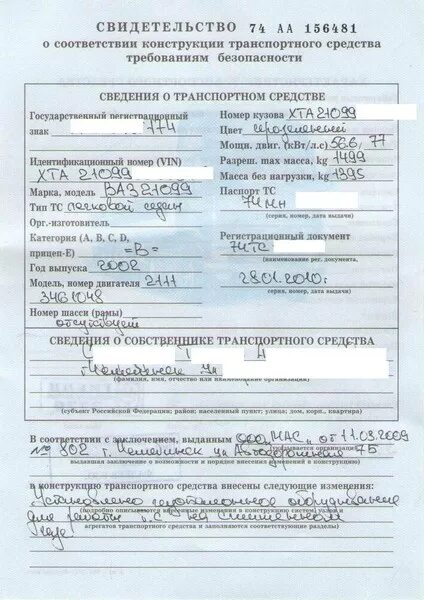 СВИДЕТЕЛЬСТВО 74 АА 156481
о соответствии конструкции транспортного средства
требованиям безопасности
СВЕДЕНИЯ О ТРАНСПОРТНОМ СРЕДСТВЕ
Государственный регистрационный
знак 174
Идентификационный номер (VIN)
ХТА 21099
Марка, модель ВАЗ21099
Тип ТС легковой седан
Орг.-изготовитель
Категория (A, B, C, D,
прицеп-E) =В=
Год выпуска 2002
Модель, номер двигателя 2111
3461048
Номер шасси (рамы)
отсутствует
Номер кузова ХТА21099
Цвет
Мощн. двиг. (кВт/л.с) 56.6/77
Разреш. max масса, kg 1499
Масса без нагрузки, kg 1395
Паспорт ТС
74 мн
(серия, номер, дата выдачи)
Регистрационный документ
74ТС
(наименование рег. документа,
28.01.2010г.
серия, номер, дата выдачи)
СВЕДЕНИЯ О СОБСТВЕННИКЕ ТРАНСПОРТНОГО СРЕДСТВА
г. Челябинск ул
(фамилия, имя, отчество или наименование организации)
(субъект Российской Федерации; район; населенный пункт; улица; дом, корп., квартира)
В соответствии с заключением, выданным ООО МАС, от 11.03.2009
№ 802 г. Челябинск ул. Автодорожная 7Б
выданная заключение о возможности и порядке внесения изменений в конструкцию)
в конструкцию транспортного средства внесены следующие изменения:
Установлено газобаллонное оборудование
(подробно описываются внесенные изменения в конструкцию систем, узлов и
для работы т.с на
агрегатов транспортного средства и заполняются соответствующие разделы)